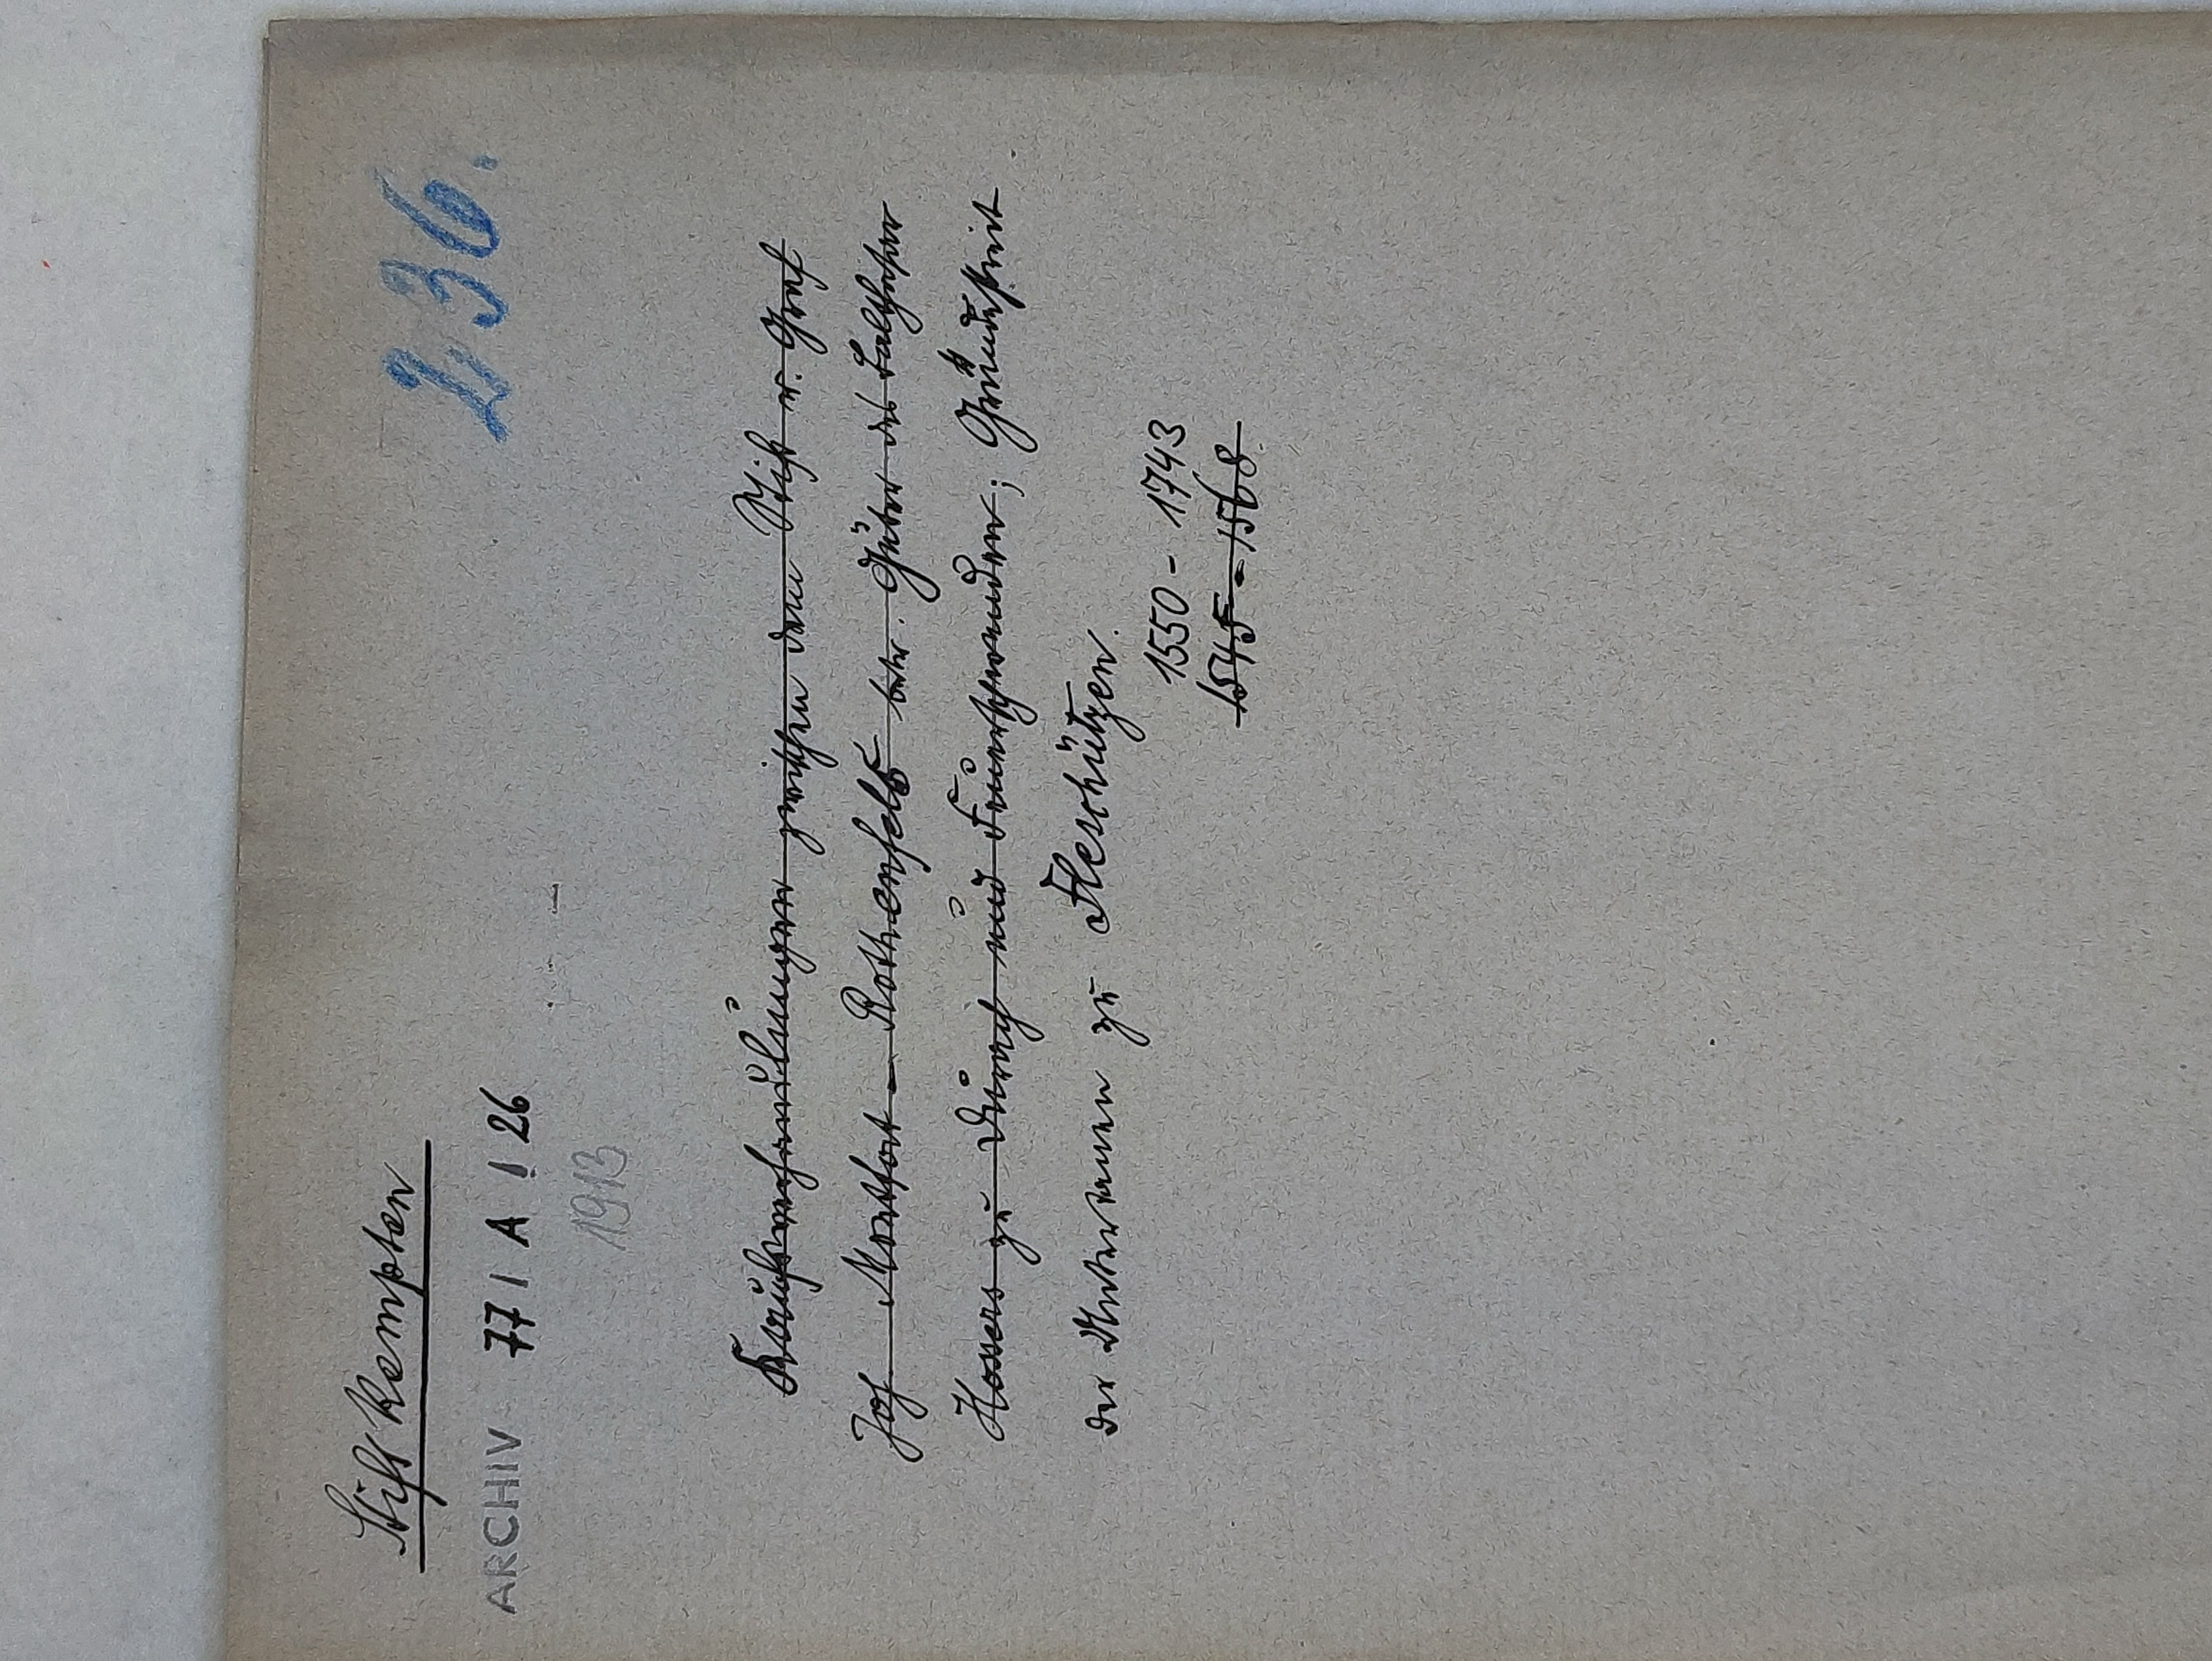 Stift Kempten
236.
ARCHIV 77 | A | 26
1913
Kaufsverhandlungen zwischen dem Stift u. Graf
Joh. Montfort - Rothenfels betr. Güter des Balthasar
Hossers zu Durach und Feuerschwenden; Gründestreit
der Untertanen zu Fleschützen.
1550 - 1743
1545 - 1568.